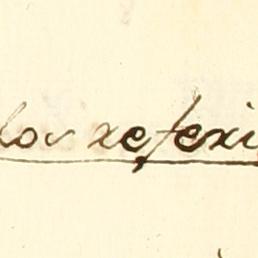 los referi